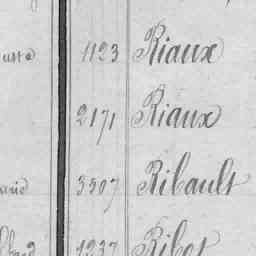 1123 Riaux
2171 Riaux
3507 Ribault
1237 Ribot